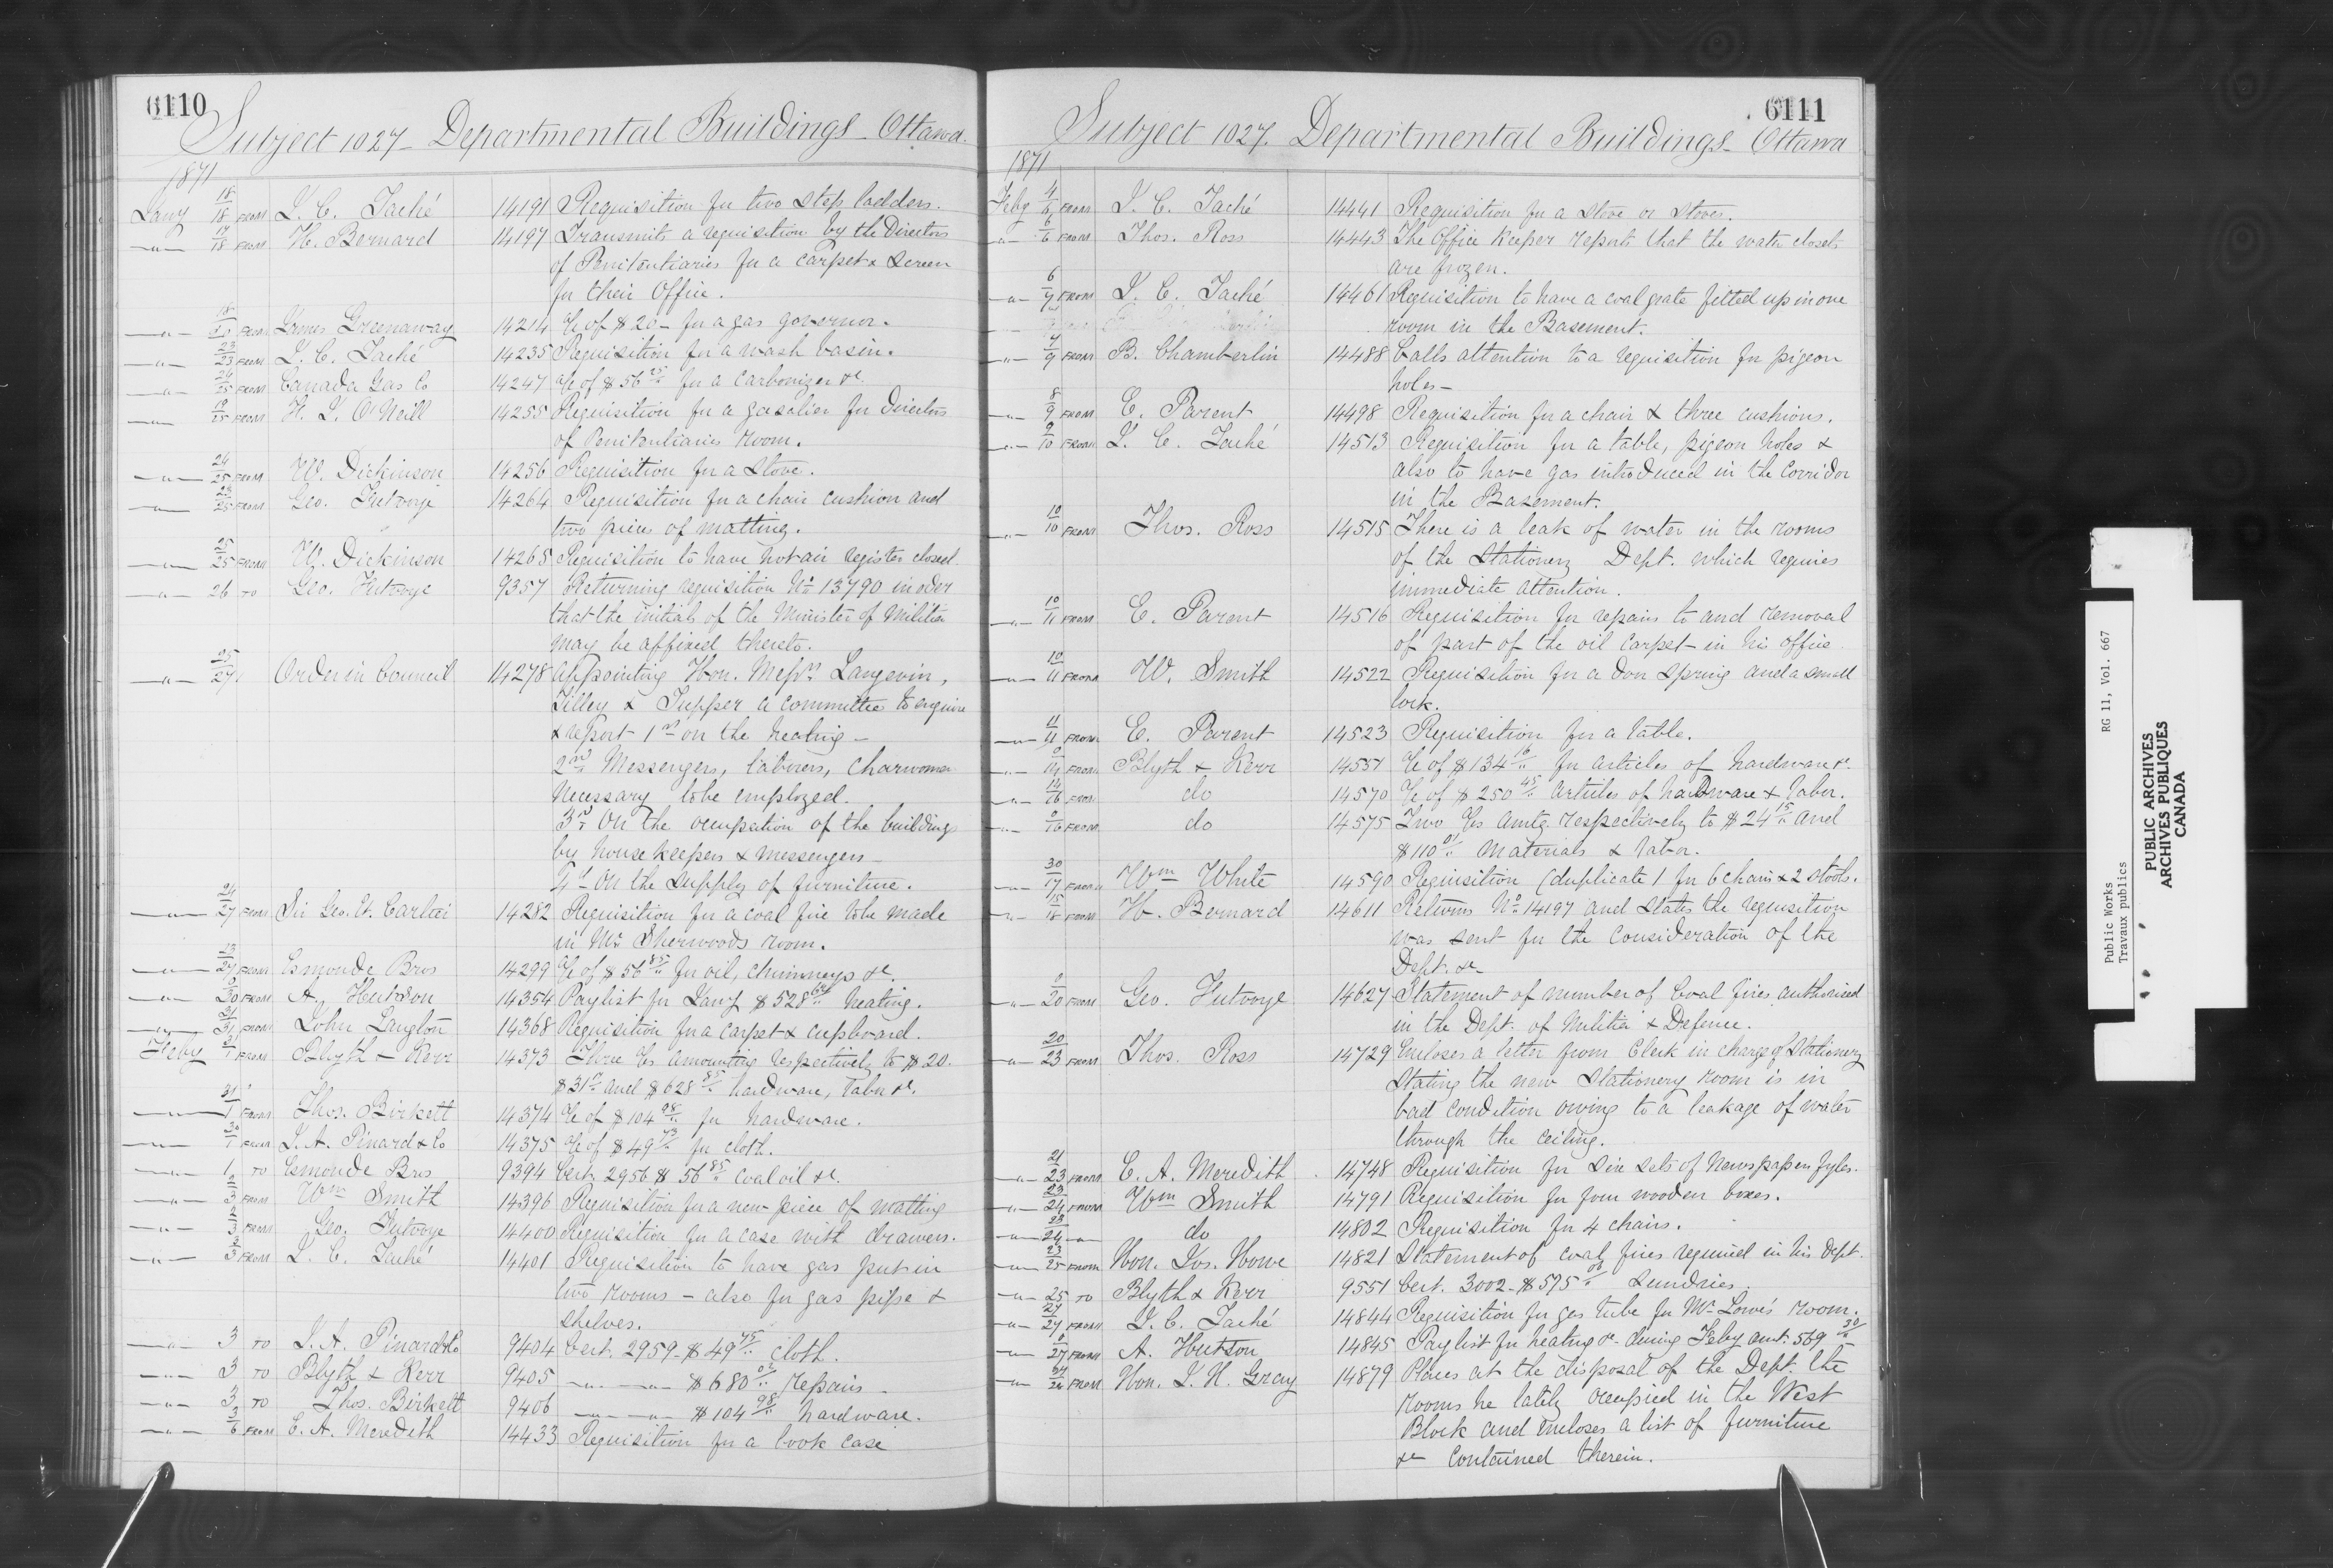 6110
Subject 1027 - Departmental Buildings - Ottawa.
1871
Jany 18/18 FROM J. C. Taché 14191 Requisition for two step ladders.
" 17/18 FROM H. Bernard 14197 Transmits a requisition by the Directors
of Penitentiaries for a carpet & screen
for their Office.
" 18/20 FROM James Greenaway 14214 a/c of $20 - for a gas governor.
" 23/23 FROM J. C. Taché 14235 Requisition for a wash basin.
" 24/25 FROM Canada Gas Co 14247 a/c of $56 25/.. for a Carbonizer &c.
" 19/25 FROM H. J. O'Neill 14255 Requisition for a gasalier for Directors
of Penitentiaries room.
" 24/25 FROM W. Dickinson 14256 Requisition for a Stove.
" 23/25 FROM Geo. Futvoye 14264 Requisition for a chair cushion and
two pieces of matting.
" 25/25 FROM W. Dickinson 14265 Requisition to have hot air register closed.
" 26 TO Geo. Futvoye 9357 Returning requisition No 13790 in order
that the initials of the Minister of Militia
may be affixed thereto.
" 25/27 Order in Council 14278 appointing Hon. Messrs Langevin,
Tilley & Tupper a Committee to enquire
& report 1st on the heating -
2nd Messengers, laborers, Charwomen
necessary to be employed.
3rd On the occupation of the buildings
by housekeepers & messengers -
4th On the supply of furniture.
" 24/27 FROM Sir Geo. Et. Cartier 14282 Requisition for a coal fire to be made
in Mr Sherwoods room.
" 23/27 FROM Esmonde Bros 14299 a/c of $56 85/.. for oil, chimneys &c.
" 0/30 FROM A. Hutson 14354 Paylist for Jany $528 64/.. heating.
" 31/31 FROM John Langton 14368 Requisition for a carpet & cupboard.
Feby 31/1 FROM Blyth & Kerr 14373 Three a/cs amounting respectively to $20.
$31 and $628 85/.. hardware, labor &c.
" 31/1 FROM Thos. Birkett 14374 a/c of $104 98/.. for hardware.
" 30/1 FROM J. A. Pinard & Co 14375 a/c of $49 73/.. for cloth.
" 1 TO Esmonde Bros 9394 Cert. 2956 $56 85/.. coal oil &c.
" 2/3 FROM Wm Smith 14396 Requisition for a new piece of matting
" 2/3 FROM Geo. Futvoye 14400 Requisition for a case with drawers.
" 2/3 FROM J. C. Taché 14401 Requisition to have gas put in
two rooms - also for gas pipe &
shelves.
" 3 TO J. A. Pinard & Co 9404 Cert. 2959 - $49 75/.. cloth.
" 3 TO Blyth & Kerr 9405 " " $680 02/.. repairs -
" 3 TO Thos. Birkett 9406 " " $104 98/.. hardware.
" 3/6 FROM E. A. Meredith 14433 Requisition for a book case
6111
Subject 1027. Departmental Buildings - Ottawa
1871
Feby 4/6 FROM J. C. Taché 14441 Requisition for a stove or stoves.
" 6/6 FROM Thos. Ross 14443 The Office Keeper reports that the water closets
are frozen.
" 6/7 FROM J. C. Taché 14461 Requisition to have a coal grate fitted up in one
room in the Basement.
" 7/9 FROM B. Chamberlin 14488 Calls attention to a requisition for pigeon
holes -
" 8/9 FROM E. Parent 14498 Requisition for a chair & three cushions.
" 9/10 FROM J. C. Taché 14513 Requisition for a table, pigeon holes &
also to have gas introduced in the Corridor
in the Basement.
" 10/10 FROM Thos. Ross 14515 There is a leak of water in the rooms
of the Stationery Dept. which requires
immediate attention.
" 10/11 FROM E. Parent 14516 Requisition for repairs to and removal
of part of the oil carpet in his office.
" 10/11 FROM W. Smith 14522 Requisition for a door spring and a small
lock.
" 11/11 FROM E. Parent 14523 Requisition for a table.
" 0/14 FROM Blyth & Kerr 14551 a/c of $134 16/.. for articles of hardware &c.
" 14/16 FROM do 14570 a/c of $250 45/.. articles of hardware & labor.
" 0/16 FROM do 14575 Two a/cs amtg. respectively to $24 15/.. and
$110 01/.. Materials & labor.
" 30/17 FROM Wm White 14590 Requisition (duplicate) for 6 chairs & 2 stools.
" 15/18 FROM H. Bernard 14611 Returns No 14197 and states the requisition
was sent for the consideration of the
Dept. &c
" 0/20 FROM Geo. Futvoye 14627 Statement of number of Coal fires authorised
in the Dept. of Militia & Defence.
" 20/23 FROM Thos. Ross 14729 Encloses a letter from Clerk in charge of Stationery
stating the new Stationery room is in
bad condition owing to a leakage of water
through the ceiling.
" 21/23 FROM E. A. Meredith 14748 Requisition for six sets of Newspapers fyles.
" 23/24 FROM Wm Smith 14791 Requisition for four wooden boxes.
" 23/24 " do 14802 Requisition for 4 chairs.
" 23/25 FROM Hon. Jos. Howe 14821 Statement of coal fires required in his Dept.
" 25 TO Blyth & Kerr 9551 Cert. 3002 - $575 06/.. Sundries.
" 27/27 FROM J. C. Taché 14844 Requisition for gas tube for Mr Lowe's room.
" 0/27 FROM A. Hutson 14845 Paylist for heating &c during Feby amt. 569 20/..
" FROM Hon. J. H. Gray 14879 Places at the disposal of the Dept. the
rooms he lately occupied in the West
Block and encloses a list of furniture
&c contained therein.
Public Works RG 11, Vol. 667
Travaux publics
PUBLIC ARCHIVES
ARCHIVES PUBLIQUES
CANADA